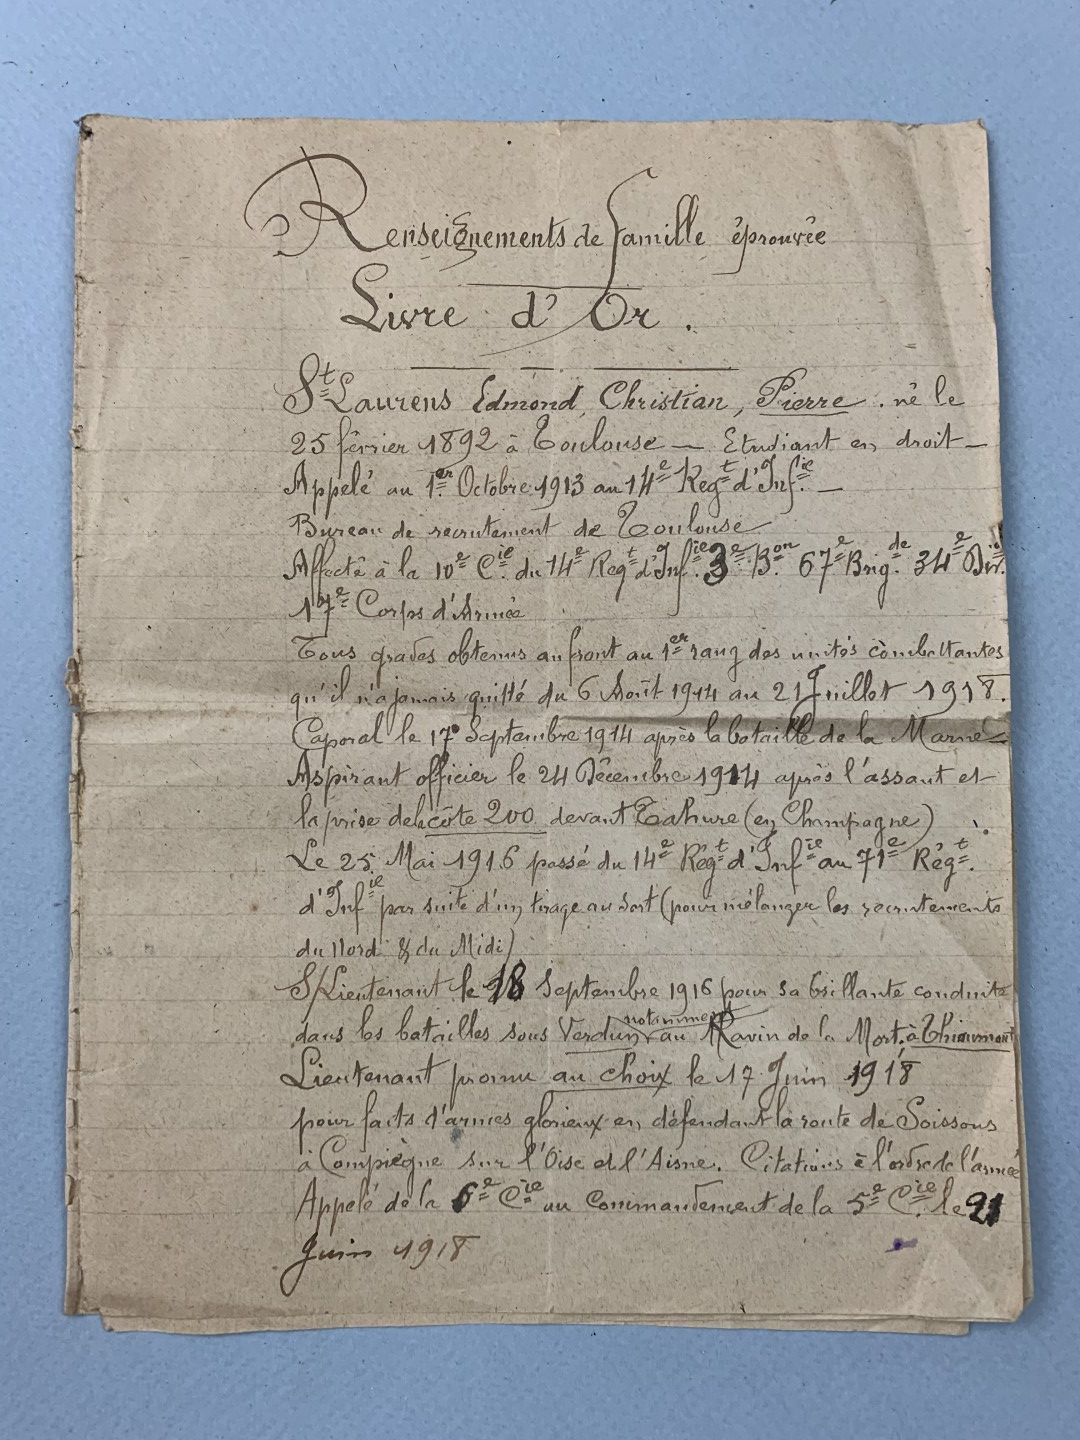 Renseignements de famille éprouvée
Livre d'Or.
St Laurens Edmond, Christian, Pierre. né le
25 février 1892 à Toulouse — Etudiant en droit —
Appelé au 1er Octobre 1913 au 14e Regt d'Infie. —
Bureau de recrutement de Toulouse
Affecté à la 10e Cie. du 14e Regt d'Infie. 3e Bon. 67e Brigde. 34e Div.
17e Corps d'Armée
Tous grades obtenus au front au 1er rang des unités combattantes
qu'il n'a jamais quitté du 6 Août 1914 au 21 Juillet 1918.
Caporal le 17 Septembre 1914 après la bataille de la Marne —
Aspirant officier le 24 Décembre 1914 après l'assaut et
la prise de la côte 200 devant Tahure (en Champagne)
Le 25 Mai 1916 passé du 14e Régt d'Infie au 71e Régt.
d'Infie par suite d'un tirage au sort (pour mélanger les recrutements
du Nord & du Midi)
S/Lieutenant le 18 Septembre 1916 pour sa brillante conduite
dans les batailles sous Verdun notamment au Ravin de la Mort, à Thiaumont
Lieutenant promu au choix le 17 Juin 1918
pour faits d'armes glorieux en défendant la route de Soissons
à Compiègne sur l'Oise et l'Aisne. Citations à l'ordre de l'armée
Appelé de la 6e Cie au Commandement de la 5e Cie. le 21
Juin 1918